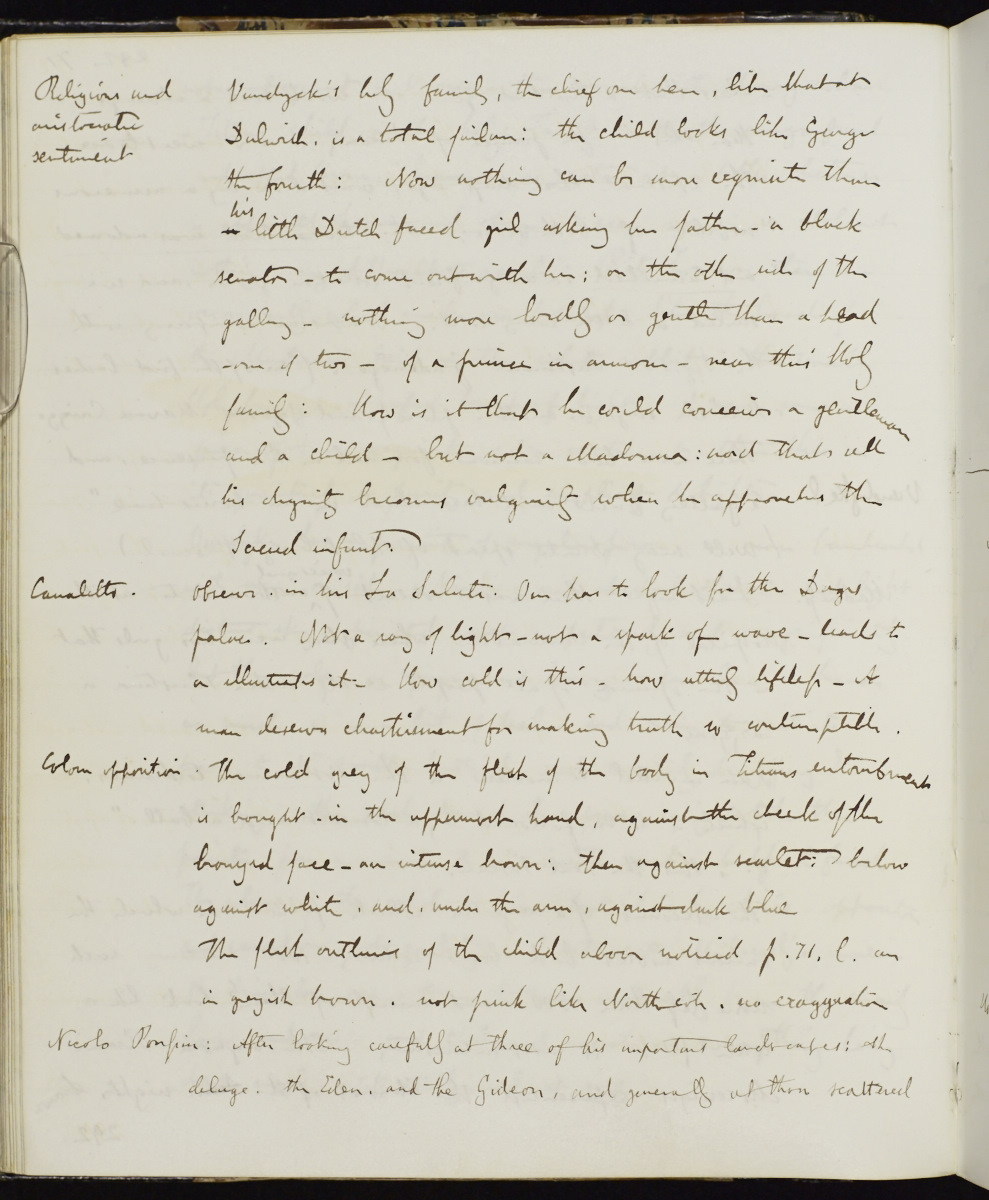 Religious and
aristocratic
sentiment
Vandyck's holy family, the chief one here, like that at
Dulwich. is a total failure: the child looks like George
the fourth: Now nothing can be more exquisite than
his
a little Dutch faced girl asking her father - a black
senator - to come out with her; on the other side of the
gallery - nothing more lordly or gentle than a head
- one of two - of a prince in armour - near this Holy
family: How is it that he could conceive a gentleman
and a child - but not a Madonna: and that all
his dignity becomes vulgarity when he approaches the
Sacred infant.
Canaletto. observe. in his La Salute. One has to look for the Doges
palace. Not a ray of light - not a spark of wave - leads to
or illustrates it - How cold is this - how utterly lifeless - A
man deserves chastisement for making truth so contemptible.
Colour opposition. The cold grey of the flesh of the body in Titians entombment
is bought. in the uppermost hand, against the cheek of the
bronzed face - an intense brown: then against scarlet: below
against white. and. under the arm, against dark blue
The flesh outlines of the child above noticed p. 71. l. are
in greyish brown. not pink like Northcote. no exaggeration
Nicolo Poussin: After looking carefully at three of his important landscapes: the
deluge. the Eden. and the Gideon, and generally at those scattered